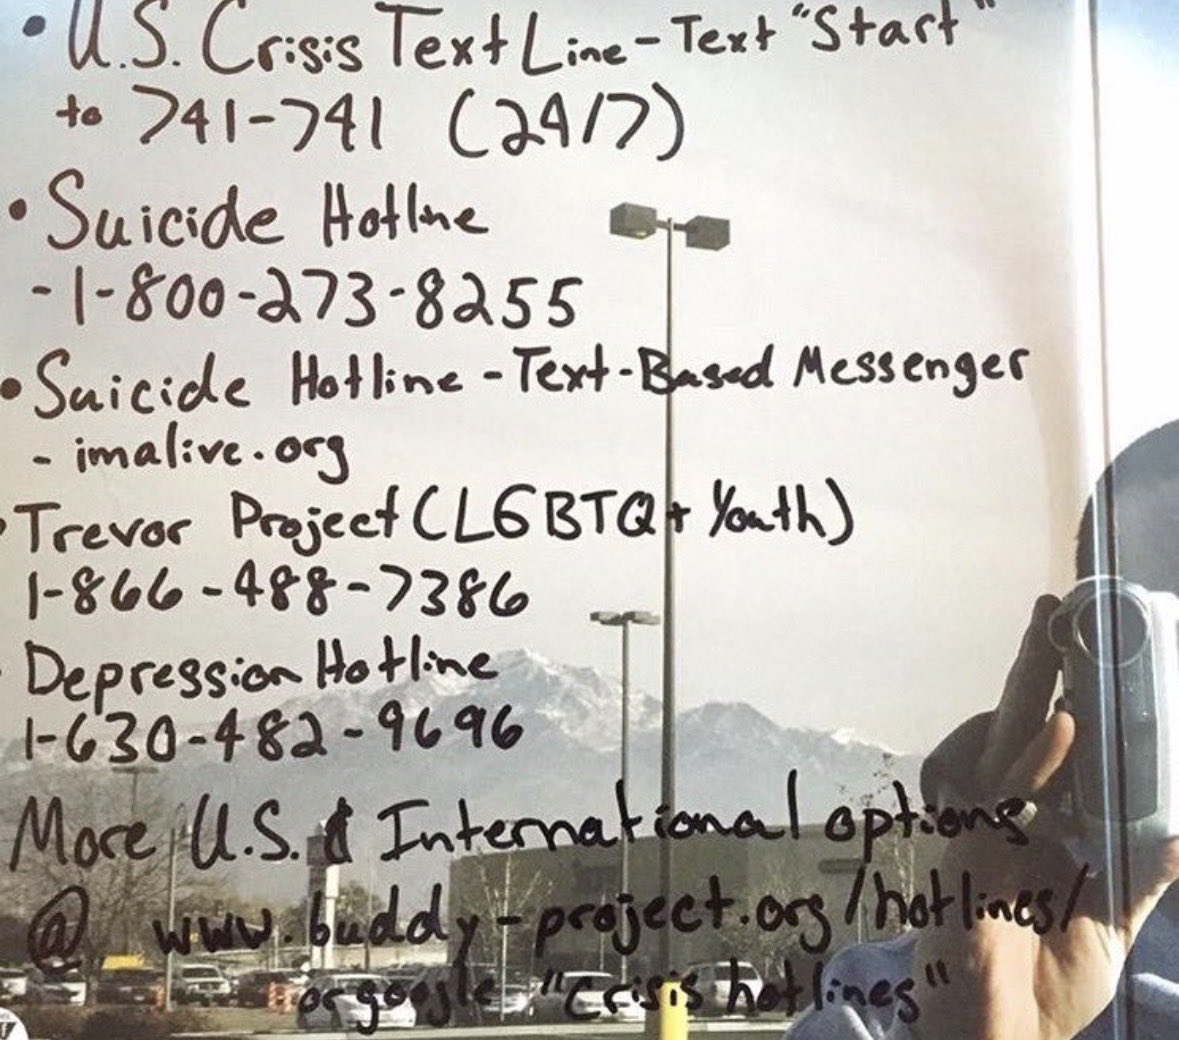 • U.S. Crisis Text Line - Text "Start"
to 741-741 (24/7)
• Suicide Hotline
- 1-800-273-8255
• Suicide Hotline - Text-Based Messenger
- imalive.org
• Trevor Project (LGBTQ+ Youth)
1-866-488-7386
Depression Hotline
1-630-482-9696
More U.S. & International options
@ www.buddy-project.org/hotlines/
or google "crisis hotlines"